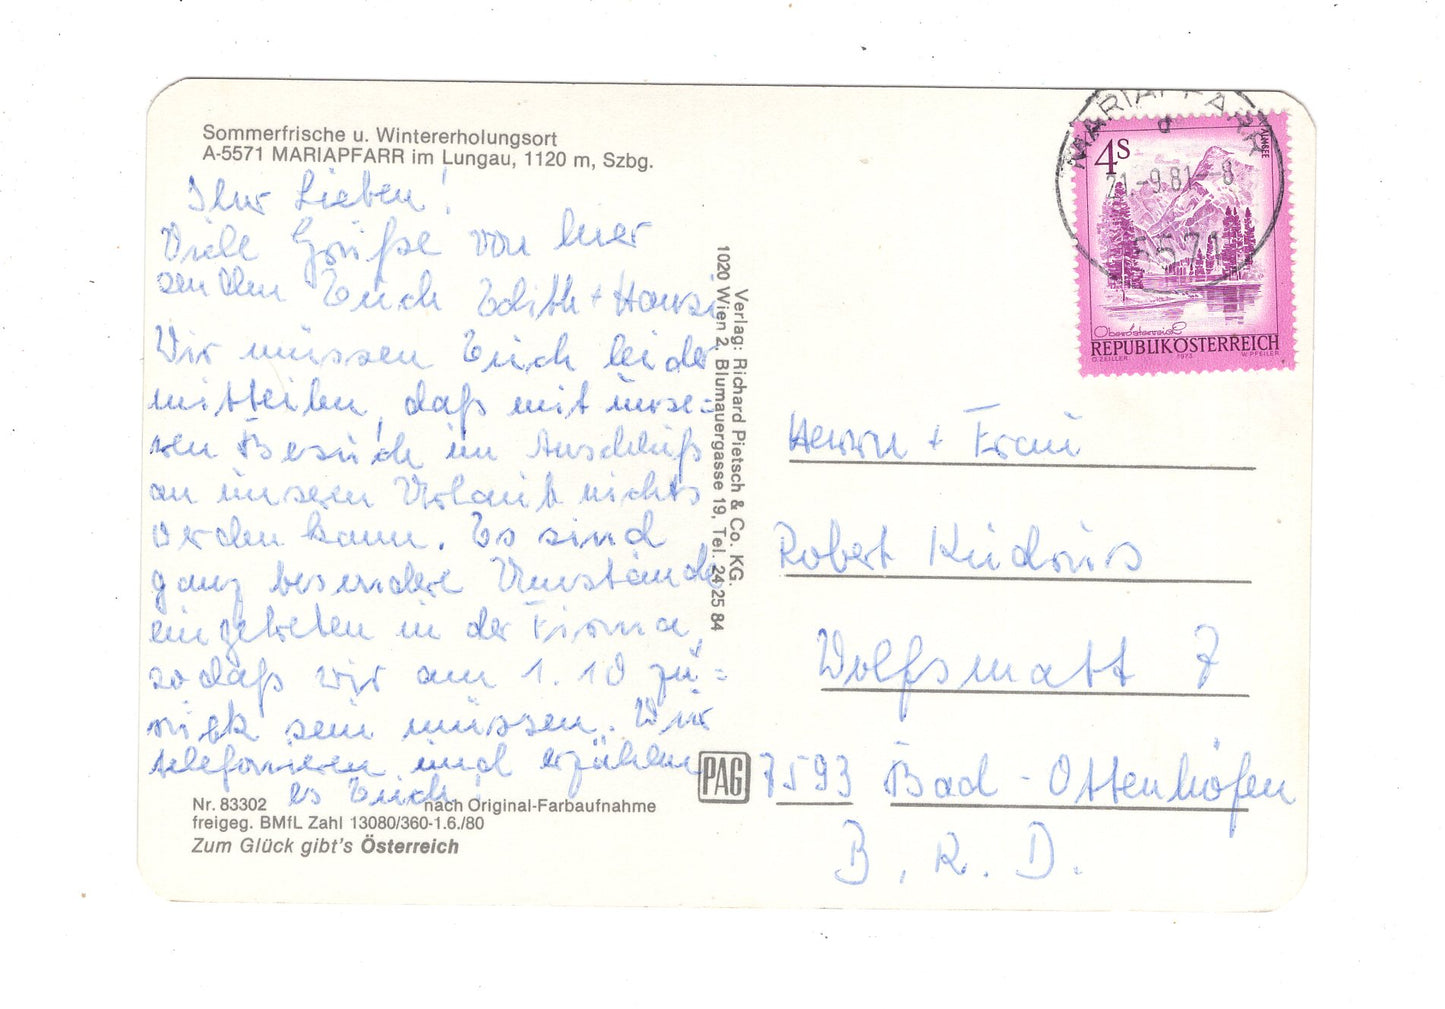 Sommerfrische u. Wintererholungsort
A-5571 MARIAPFARR im Lungau, 1120 m, Szbg.
Ihr Lieben!
Viele Grüße von hier
senden Euch Edith + Hansi
Wir müssen Euch leider
mitteilen, daß mit unse=
ren Besuch im Anschluß
an unseren Urlaub nichts
werden kann. Es sind
ganz besondere Umstände
eingetreten in der Firma,
sodaß wir am 1. 10 zu=
rück sein müssen. Wir
telefonieren und erzählen
es Euch
Nr. 83302 nach Original-Farbaufnahme
freigeg. BMfL Zahl 13080/360-1.6./80
Zum Glück gibt's Österreich
Verlag: Richard Pietsch & Co. KG.
1020 Wien 2, Blumauergasse 19, Tel. 24 25 84
PAG
MARIAPFARR
d
21.-9.81-8
5571
4S
ALMSEE
Oberösterreich
REPUBLIK ÖSTERREICH
O. ZEILLER 1973 W. PFEILER
Herrn + Frau
Robert
Wolfsmatt 7
7593 Bad-Ottenhöfen
B. R. D.